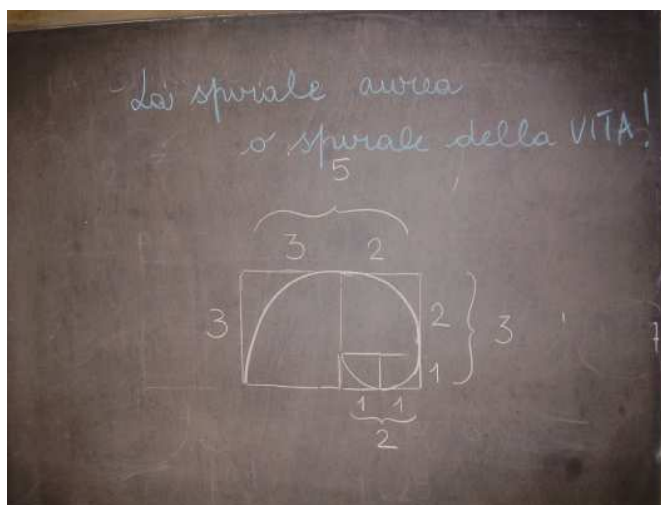 La spirale aurea
o spirale della VITA!
5
3 2
3 2 3
1
1 1
2